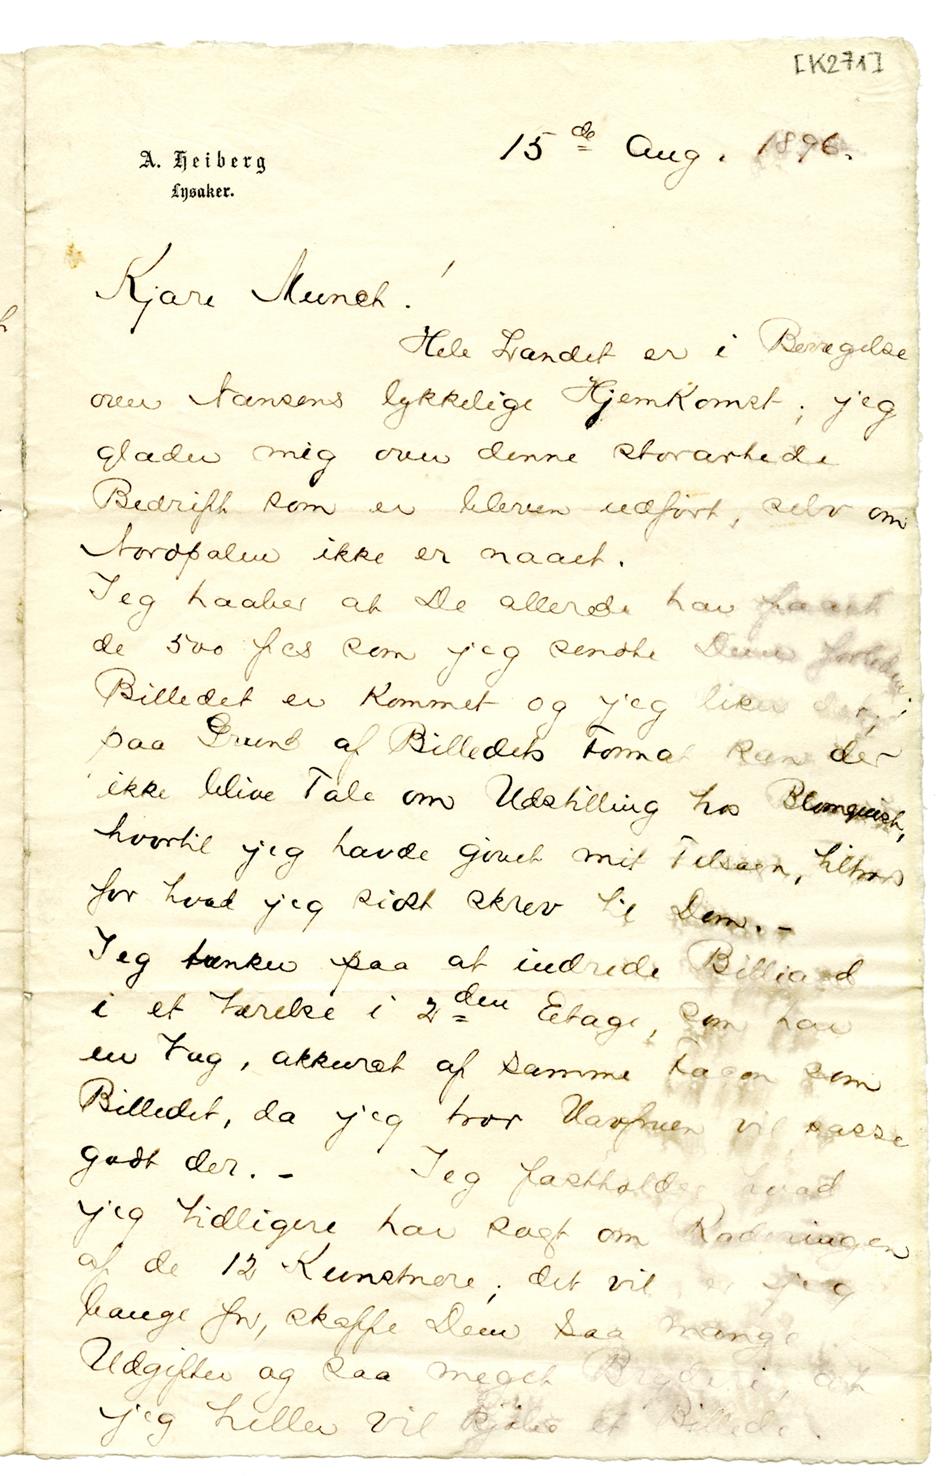 [K271]
A. Heiberg
Lysaker.
15de Aug. 1896.
Kjære Munch!
Hele Landet er i Bevægelse
over Nansens lykkelige Hjemkomst; jeg
glæder mig over denne storartede
Bedrift som er bleven udført, selv om
Nordpolen ikke er naaet.
Jeg haaber at De allerede har faaet
de 500 fcs som jeg sendte Dem forleden;
Billedet er kommet og jeg liker det;
paa Grund af Billedets Format kan der
ikke blive Tale om Udstilling hos Blomquist,
hvortil jeg havde givet mit Tilsagn, tiltrods
for hvad jeg sidst skrev til Dem. -
Jeg tænker paa at indrede Billiard
i et Værelse i 2den Etage, som har
en Væg, akkurat af samme Facon som
Billedet, da jeg tror Havfruen vil passe
godt der. - Jeg fastholder hvad
jeg tidligere har sagt om Raderingen
af de 12 Kunstnere; det vil er jeg
bange for, skaffe Dem saa mange
Udgifter og saa meget Bryderi, at
jeg heller vil kjøbe et Billede.